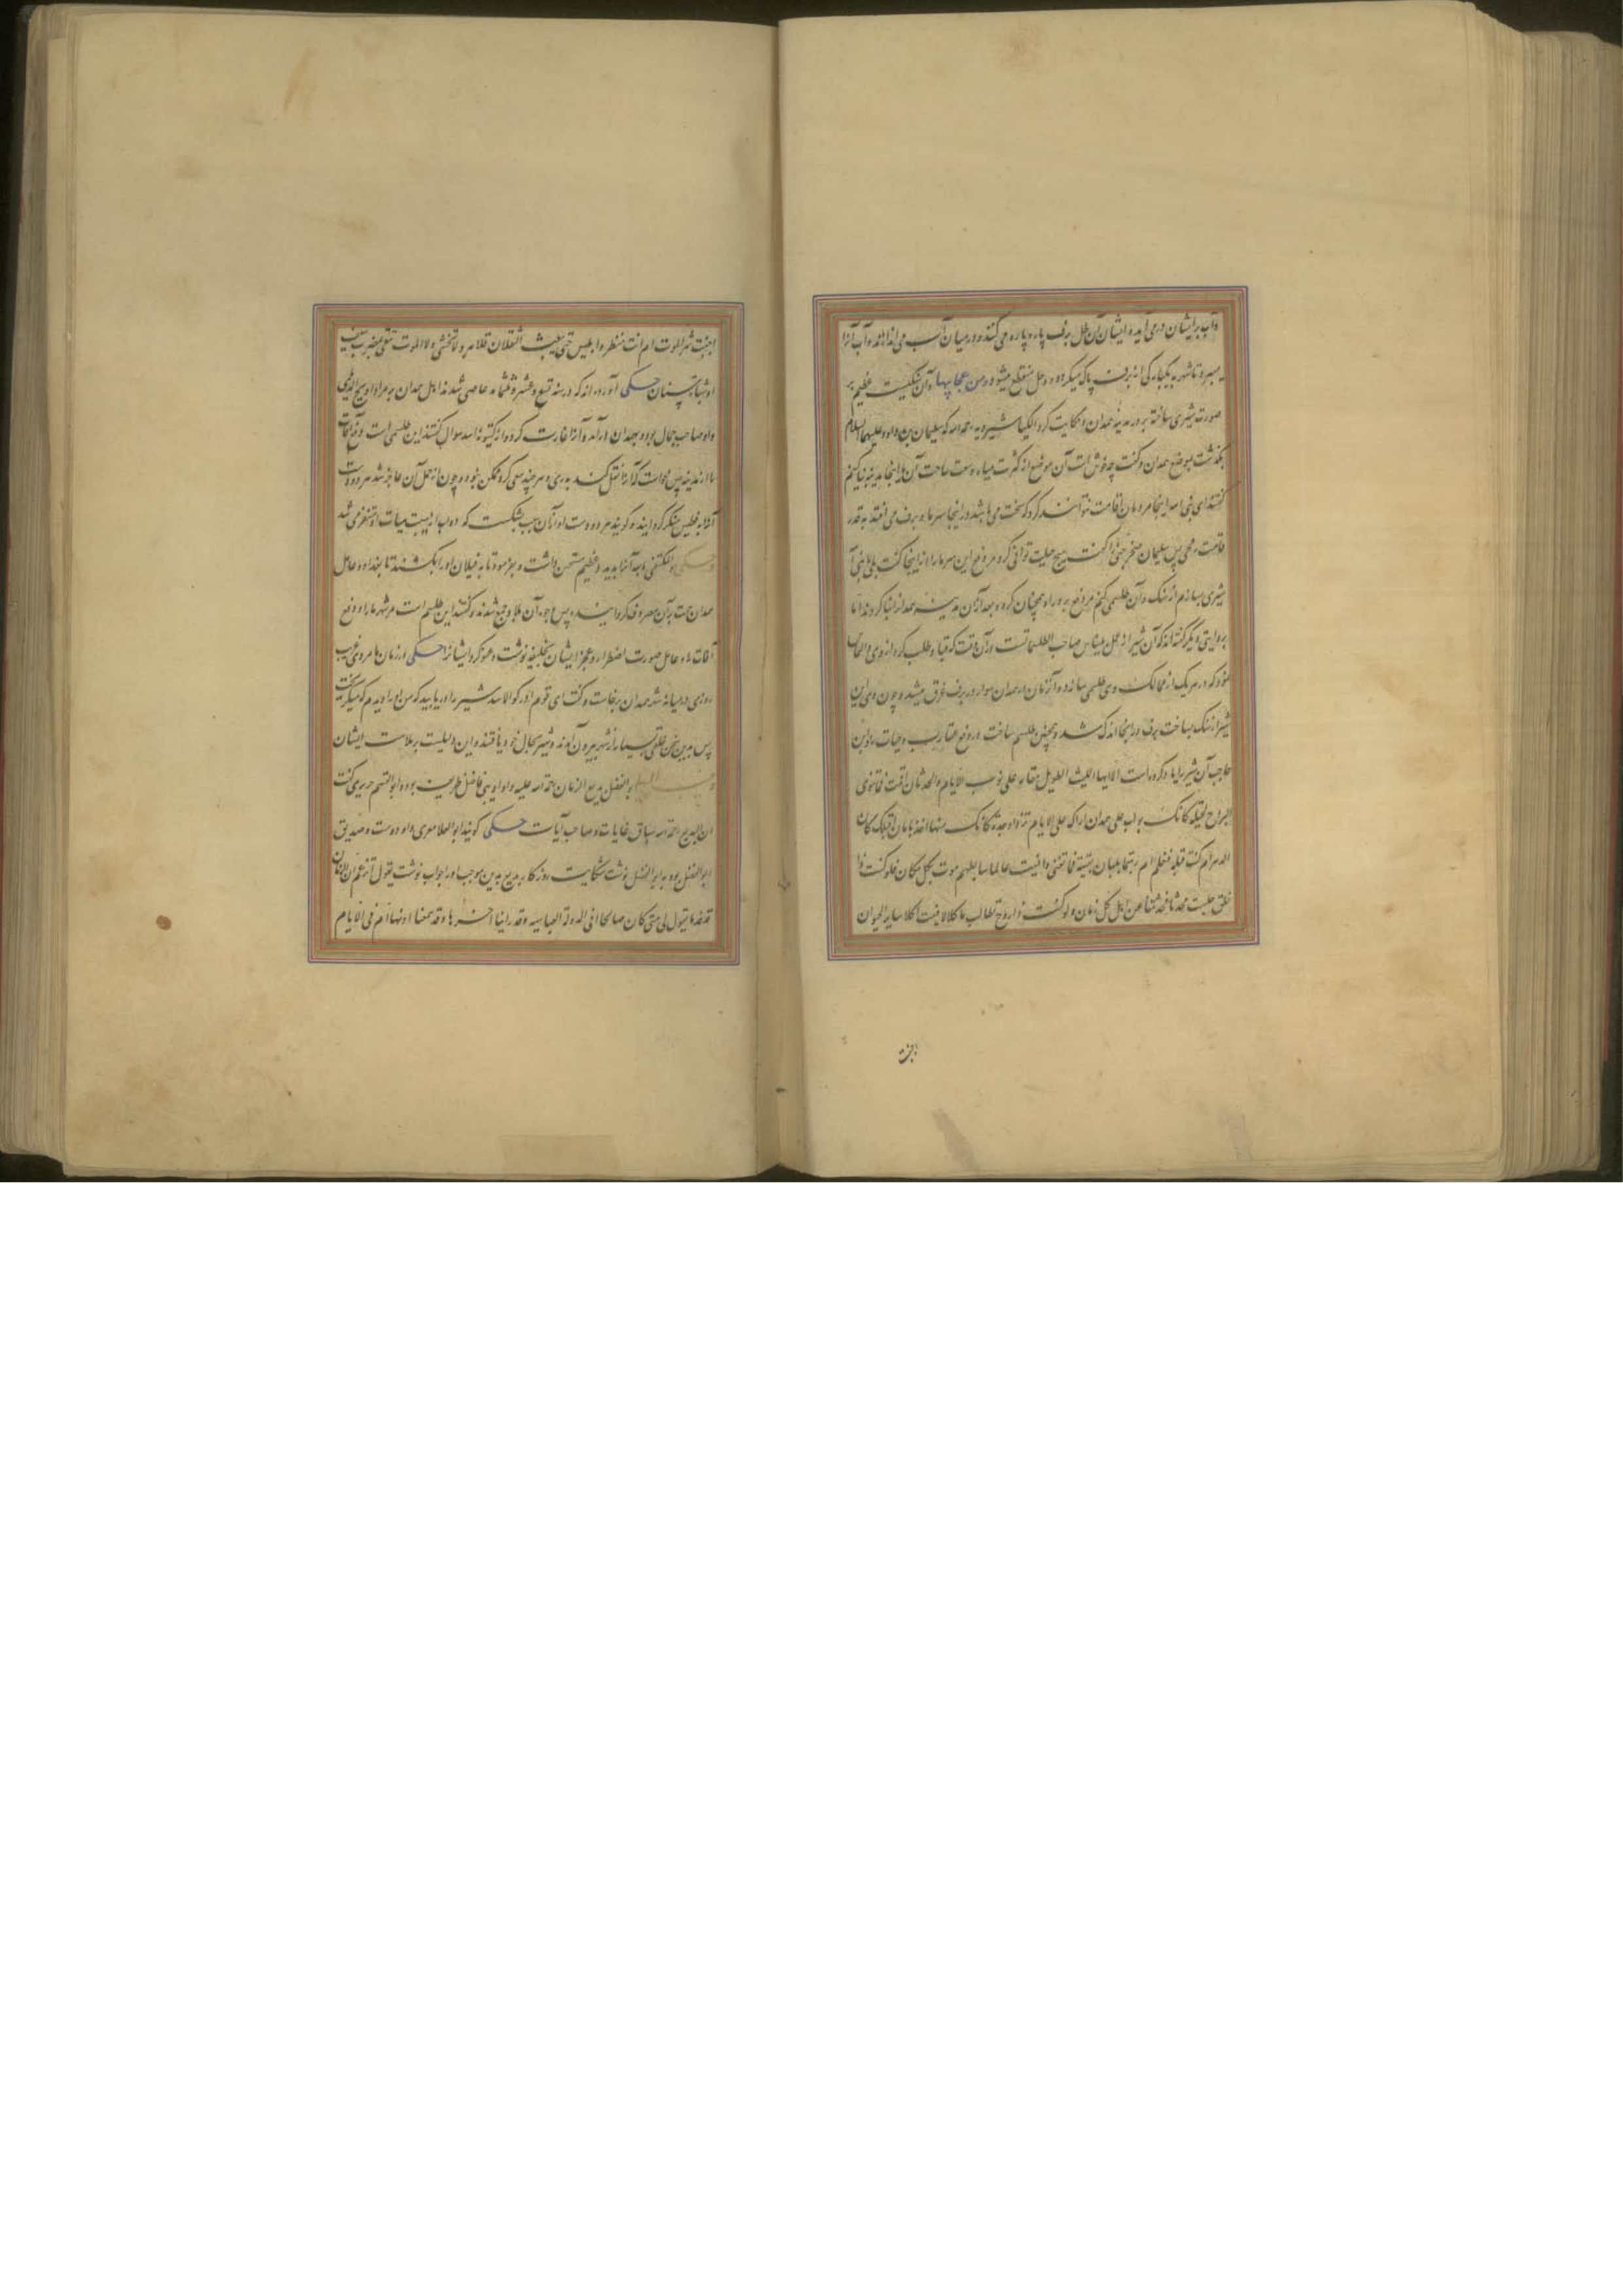 و آب بر ایشان در می آید و ایشان آن ظل برف پاره پاره می کنند و در میان آب می اندازند و آب آنرا
میبرد تا شهر به یکبارگی از برف پاک میگردد و وحل منقطع میشود و من عجایبها و آن سنگیست عظیم بر
صورت شیری ساخته بر در مدینه همدان و حکایت کرد الکیا شیرویه رحمه الله که سلیمان بن داود علیهما السلام
بگذشت بموضع همدان و گفت چه خوش است آن موضع از کثرت میاه و سعت ساحت آن اینجا مدینه بنا کنیم
گفتند ای نبی الله اینجا مردمان اقامت نتوانند کرد که سخت می باشد در اینجا سرما و برف می افتد به قدر
قامت رمحی پس سلیمان صخر جنی را گفت هیچ حیلت توانی کرد در دفع این سرما را از اینجا گفت بلی یا نبی الله
شیری بسازم از سنگ و آن طلسمی کنم مر دفع برد را و همچنان کرد و بعد از آن مدینه همدان را بنا کردند اما
بروایتی دیگر گفته اند که آن شیر از عمل بلیناس صاحب الطلسمات است در آن وقت که قباد طلب کرد از وی و التماس
نمود که در هر یک از ممالک وی طلسمی سازد و در آن زمان در همدان سوار در برف غرق میشد و چون وی این
شیر از سنگ بساخت برف در اینجا اندک شد و همچنین طلسم ساخت در دفع عقارب و حیات و ابن
حاجب آن شیر را یاد کرده است الا ایها اللیث الطویل مقامه علی نوب الایام و الحدثان اقمت فما تنوی
البراح بحیلة کانک بواب علی همدان اراک علی الایام تزداد جدة کانک منها اخذ بامان اقبلک کان
الدهر ام کنت قبله فنعلم ام ربیتما بلبان بقیت فما تفنی و افنیت عالما سطا بهم موت بکل مکان فلو کنت ذا
نطق جلست محدثا تحدثنا عن اهل کل زمان و لو کنت ذا روح تطالب ماکلا لافنیت اکلا سایر الحیوان
اجنبت
اجنبت شر الموت ام انت منظر و ابلیس حتی یبعث الثقلان فلا هرما تخشی و لا الموت تتقی بمضرب سیف
او شباة سنان حکی آورده اند که در سنه تسع و عشر و ثلثمائه عاصی شدند اهل همدان بر مرداویج الدیلمی
و او صاحب جمال بود و بهمدان در آمد و آنرا غارت کرد و از کیفیت اسد سوال گفتند این طلسمی است دفع آفات
ما را از مدینه پس خواست که آنرا نقل کند به ری و هر چند سعی کرد ممکن نبود و چون از حمل آن عاجز شد هر دو دست
آنرا به فطیس منکسر گردانیدند و گویند هر دو دست او از آن سبب شکست که دواب از هیبت هیات او متنفر می شد
و حکی المکتفی بالله آنرا بدید و عظیم مستحسن داشت و بفرمود تا به فیلان او را بکشند تا بغداد و عامل
همدان همت بر آن مصروف گردانید پس وجوه آن بلاد جمع شدند و گفتند این طلسم است مر شهر ما را و دفع
آفات ما و عامل صورت اضطرار و عجز ایشان بخلیفه نوشت و عفو کرد ایشانرا حکی در زمان ما مردی غریب
روزی در میانه شهر همدان برخاست و گفت ای قوم ادرکوا الاسد شیر را دریابید که من او را دیدم که میگریخت
پس بدین سخن خلقی بسیار از شهر بیرون آمدند و شیر بحال خود یافتند و این دلیلست بر ملامت ایشان
ابو الفضل بدیع الزمان رحمة الله علیه و او ادیبی فاضل ظریف بوده ابو القسم حریری گفت
ان البدیع رحمه الله سباق غایات و صاحب آیات حکی گویند ابو العلا معری و او دوست و صدیق
ابو الفضل بود به ابو الفضل نوشت شکایت روزگار بدیع بدین موجب او را جواب نوشت یقول تزعم ان الزمان
قد فسد یقول لی متی کان صالحا افی الدولة العباسیه و قد راینا اخرها و قد سمعنا اولها ام فی الایام